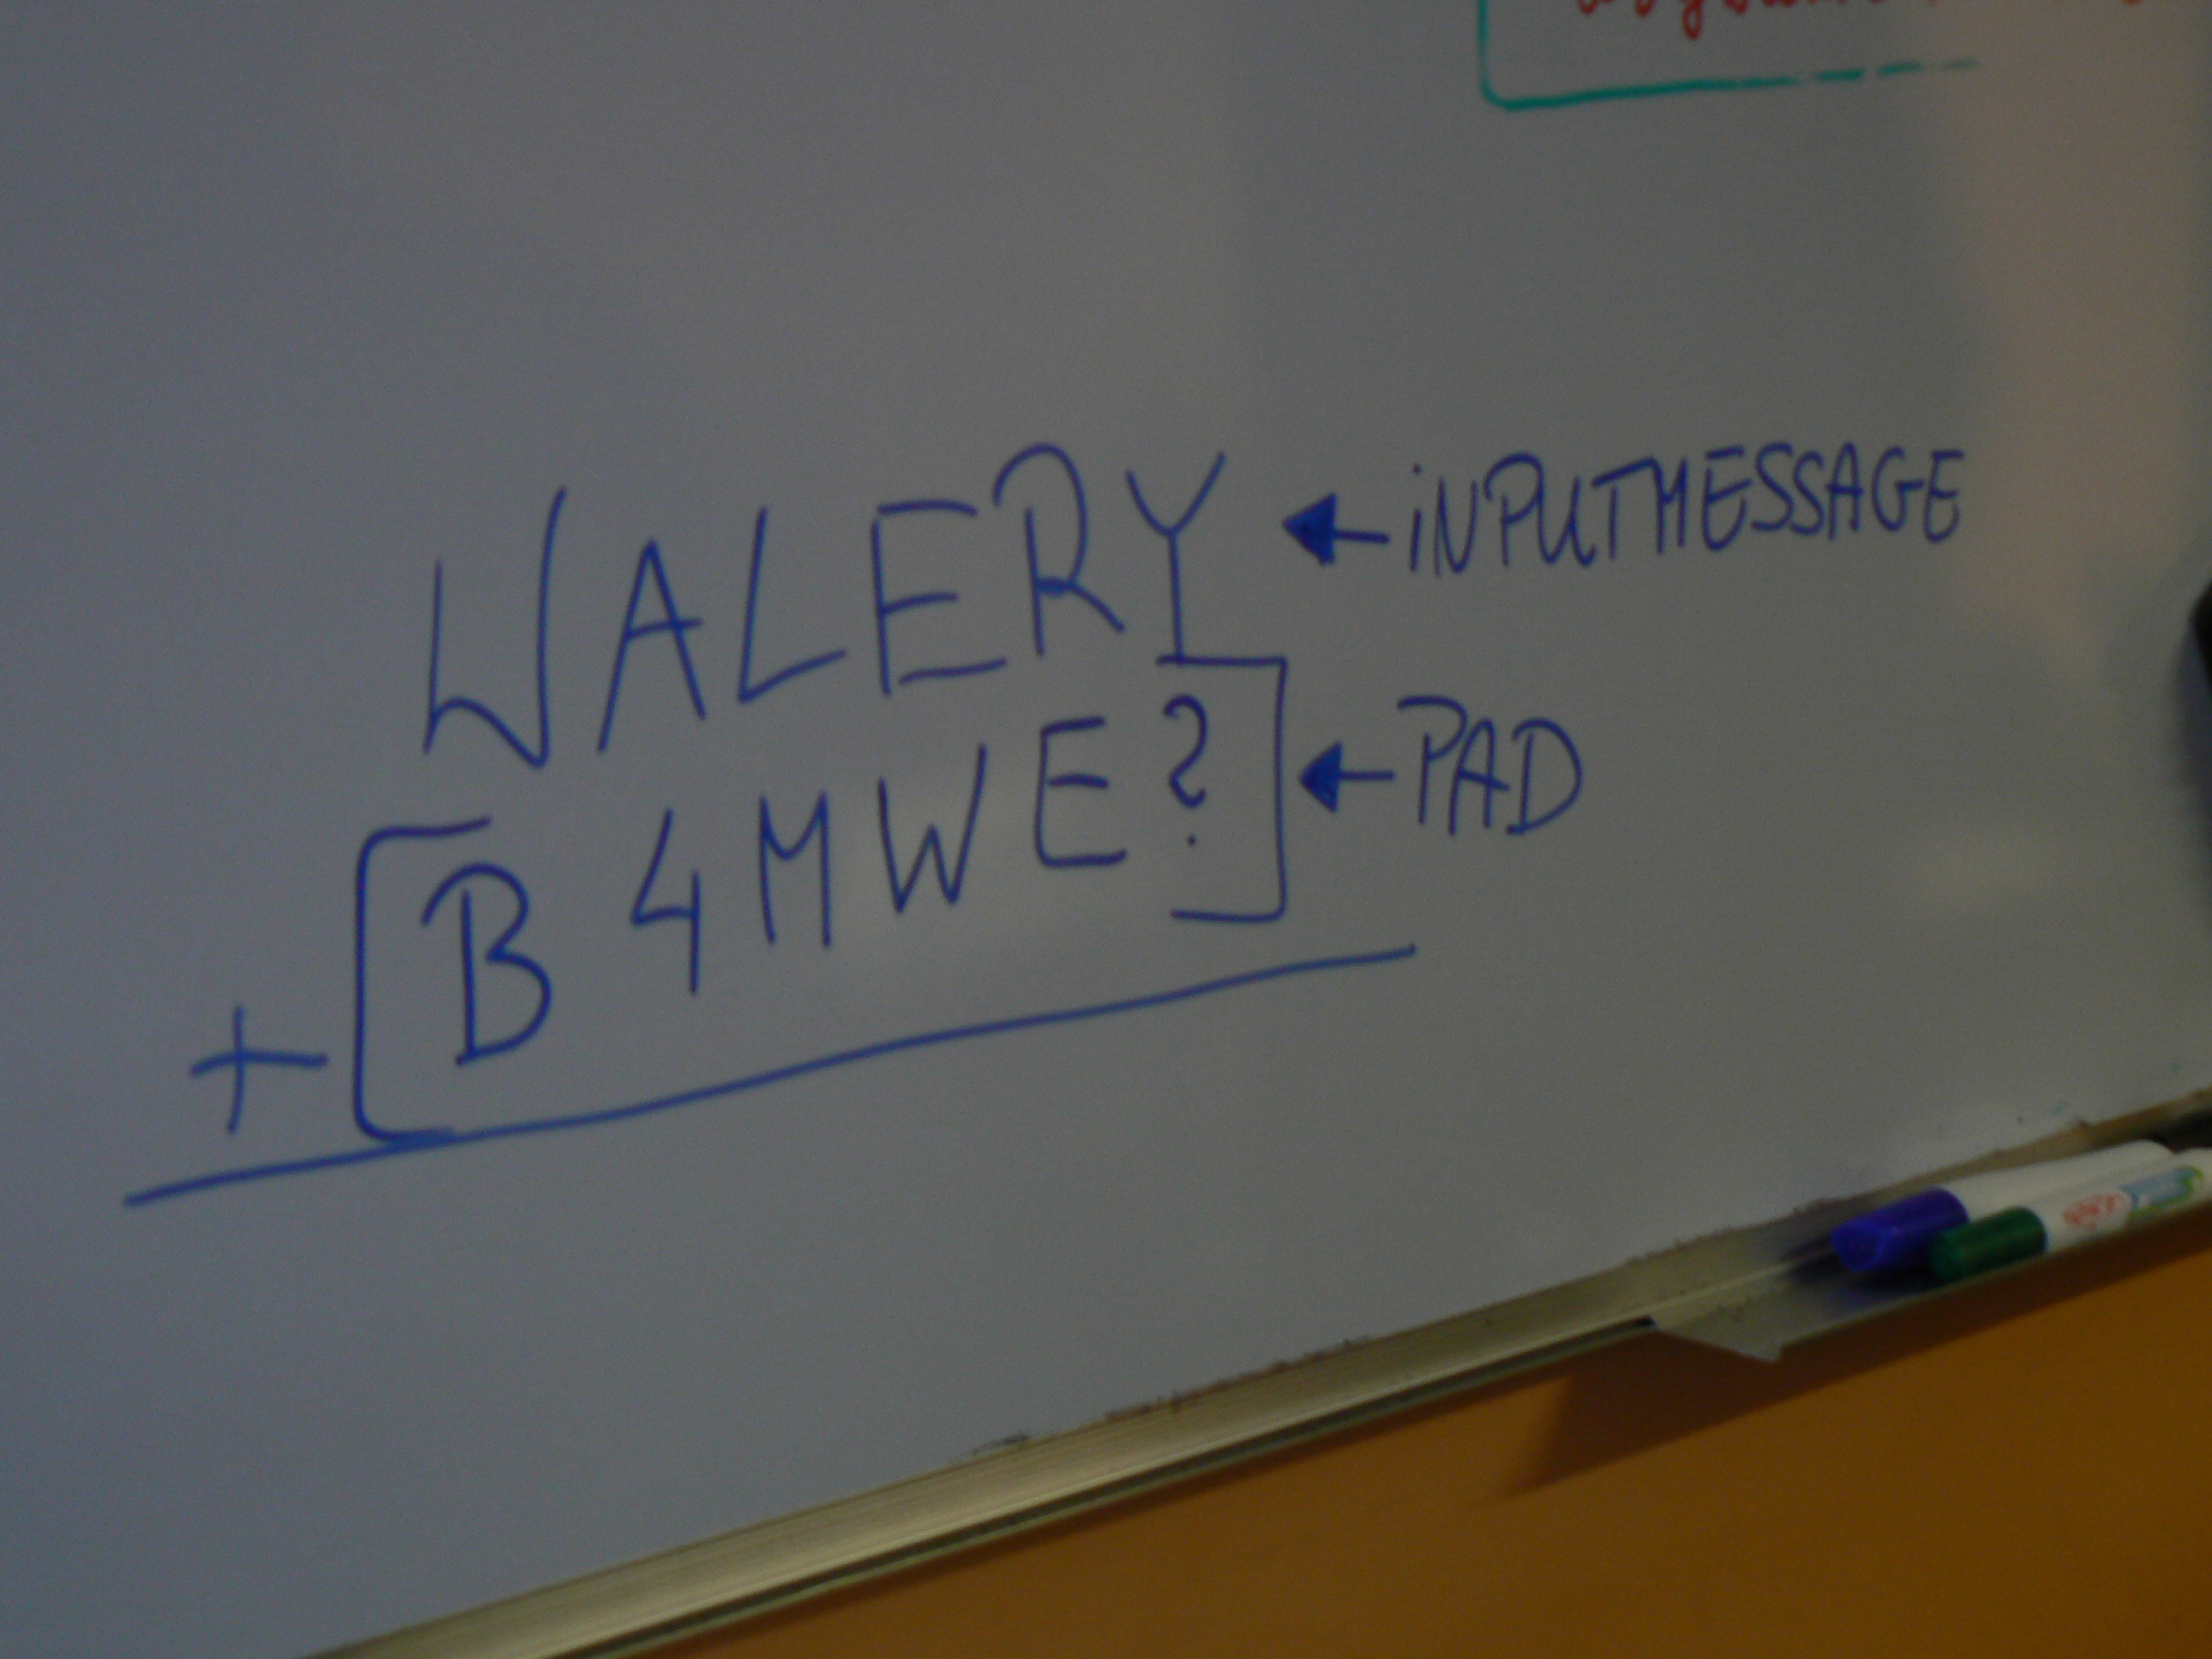 WALERY ← iNPUTMESSAGE
+ [B4MWE?] ← PAD